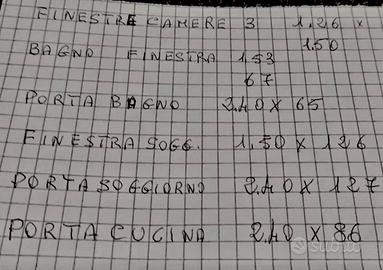 FINESTRE CAMERE 3 1.26 x
1.50
BAGNO FINESTRA 1,53
67
PORTA BAGNO 2.40 X 65
FINESTRA SOGG. 1,50 X 126
PORTA SOGGIORNO 2.40 X 127
PORTA CUCINA 2.40 X 86
subito